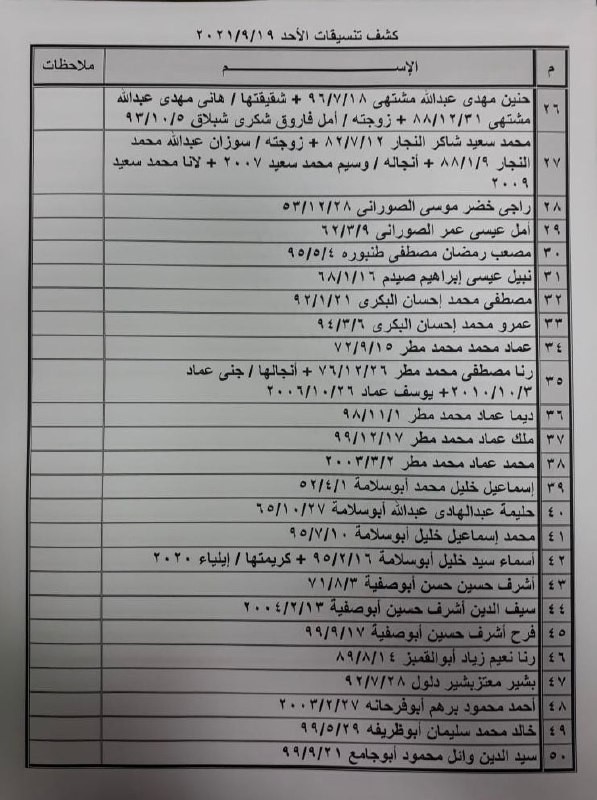 كشف تنسيقات الأحد ٢٠٢١/٩/١٩
م الإســـــم ملاحظات
٢٦ حنين مهدى عبدالله مشتهى ٩٦/٧/١٨ + شقيقتها / هانى مهدى عبدالله
مشتهى ٨٨/١٢/٣١ + زوجته / أمل فاروق شكرى شبلاق ٩٣/١٠/٥
٢٧ محمد سعيد شاكر النجار ٨٢/٧/١٢ + زوجته / سوزان عبدالله محمد
النجار ٨٨/١/٩ + أنجاله / وسيم محمد سعيد ٢٠٠٧ + لانا محمد سعيد
٢٠٠٩
٢٨ راجى خضر موسى الصورانى ٥٣/١٢/٢٨
٢٩ أمل عيسى عمر الصورانى ٦٢/٣/٩
٣٠ مصعب رمضان مصطفى طنبوره ٩٥/٥/٤
٣١ نبيل عيسى إبراهيم صيدم ٦٨/١/١٦
٣٢ مصطفى محمد إحسان البكرى ٩٢/١/٢١
٣٣ عمرو محمد إحسان البكرى ٩٤/٣/٦
٣٤ عماد محمد محمد مطر ٧٢/٩/١٥
٣٥ رنا مصطفى محمد مطر ٧٦/١٢/٢٦ + أنجالها / جنى عماد
٢٠١٠/١٠/٣+ يوسف عماد ٢٠٠٦/١٠/٢٦
٣٦ ديما عماد محمد مطر ٩٨/١١/١
٣٧ ملك عماد محمد مطر ٩٩/١٢/١٧
٣٨ محمد عماد محمد مطر ٢٠٠٣/٣/٢
٣٩ إسماعيل خليل محمد أبوسلامة ٥٢/٤/١
٤٠ حليمة عبدالهادى عبدالله أبوسلامة ٦٥/١٠/٢٧
٤١ محمد إسماعيل خليل أبوسلامة ٩٥/٧/١٠
٤٢ أسماء سيد خليل أبوسلامة ٩٥/٢/١٦ + كريمتها / إيلياء ٢٠٢٠
٤٣ أشرف حسين حسن أبوصفية ٧١/٨/٣
٤٤ سيف الدين أشرف حسين أبوصفية ٢٠٠٤/٢/١٣
٤٥ فرح أشرف حسين أبوصفية ٩٩/٩/١٧
٤٦ رنا نعيم زياد أبوالقمبز ٨٩/٨/١٤
٤٧ بشير معتزبشير دلول ٩٢/٧/٢٨
٤٨ أحمد محمود برهم أبوفرحانه ٢٠٠٣/٢/٢٧
٤٩ خالد محمد سليمان أبوظريفه ٩٩/٥/٢٩
٥٠ سيد الدين وائل محمود أبوجامع ٩٩/٩/٢١